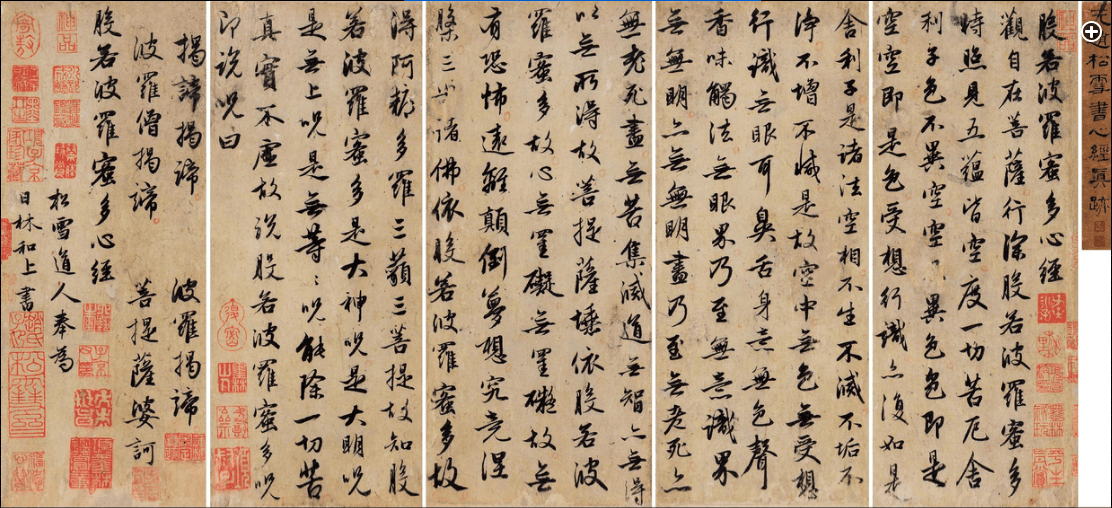 元趙松雪書心經真跡
般若波羅蜜多心經
觀自在菩薩行深般若波羅蜜多
時照見五蘊皆空度一切苦厄舍
利子色不異空空〻異色色即是
空空即是色受想行識亦復如是
舍利子是諸法空相不生不滅不垢不
淨不增不減是故空中無色無受想
行識無眼耳鼻舌身意無色聲
香味觸法無眼界乃至無意識界
無無明亦無無明盡乃至無老死亦
無老死盡無苦集滅道無智亦無得
以無所得故菩提薩埵依般若波
羅蜜多故心無罣礙無罣礙故無
有恐怖遠離顛倒夢想究竟涅
槃三世諸佛依般若波羅蜜多故
得阿耨多羅三藐三菩提故知般
若波羅蜜多是大神咒是大明咒
是無上咒是無等〻咒能除一切苦
真實不虛故說般若波羅蜜多咒
即說咒曰
揭諦揭諦 波羅揭諦
波羅僧揭諦 菩提薩婆訶
般若波羅蜜多心經
松雪道人奉為
日林和上書